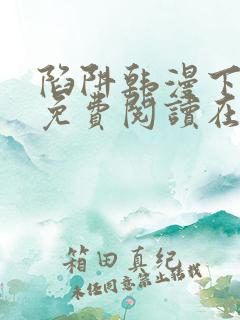 陷阱韩漫下
免費閱讀在
箱田真纪
未经同意禁止转载